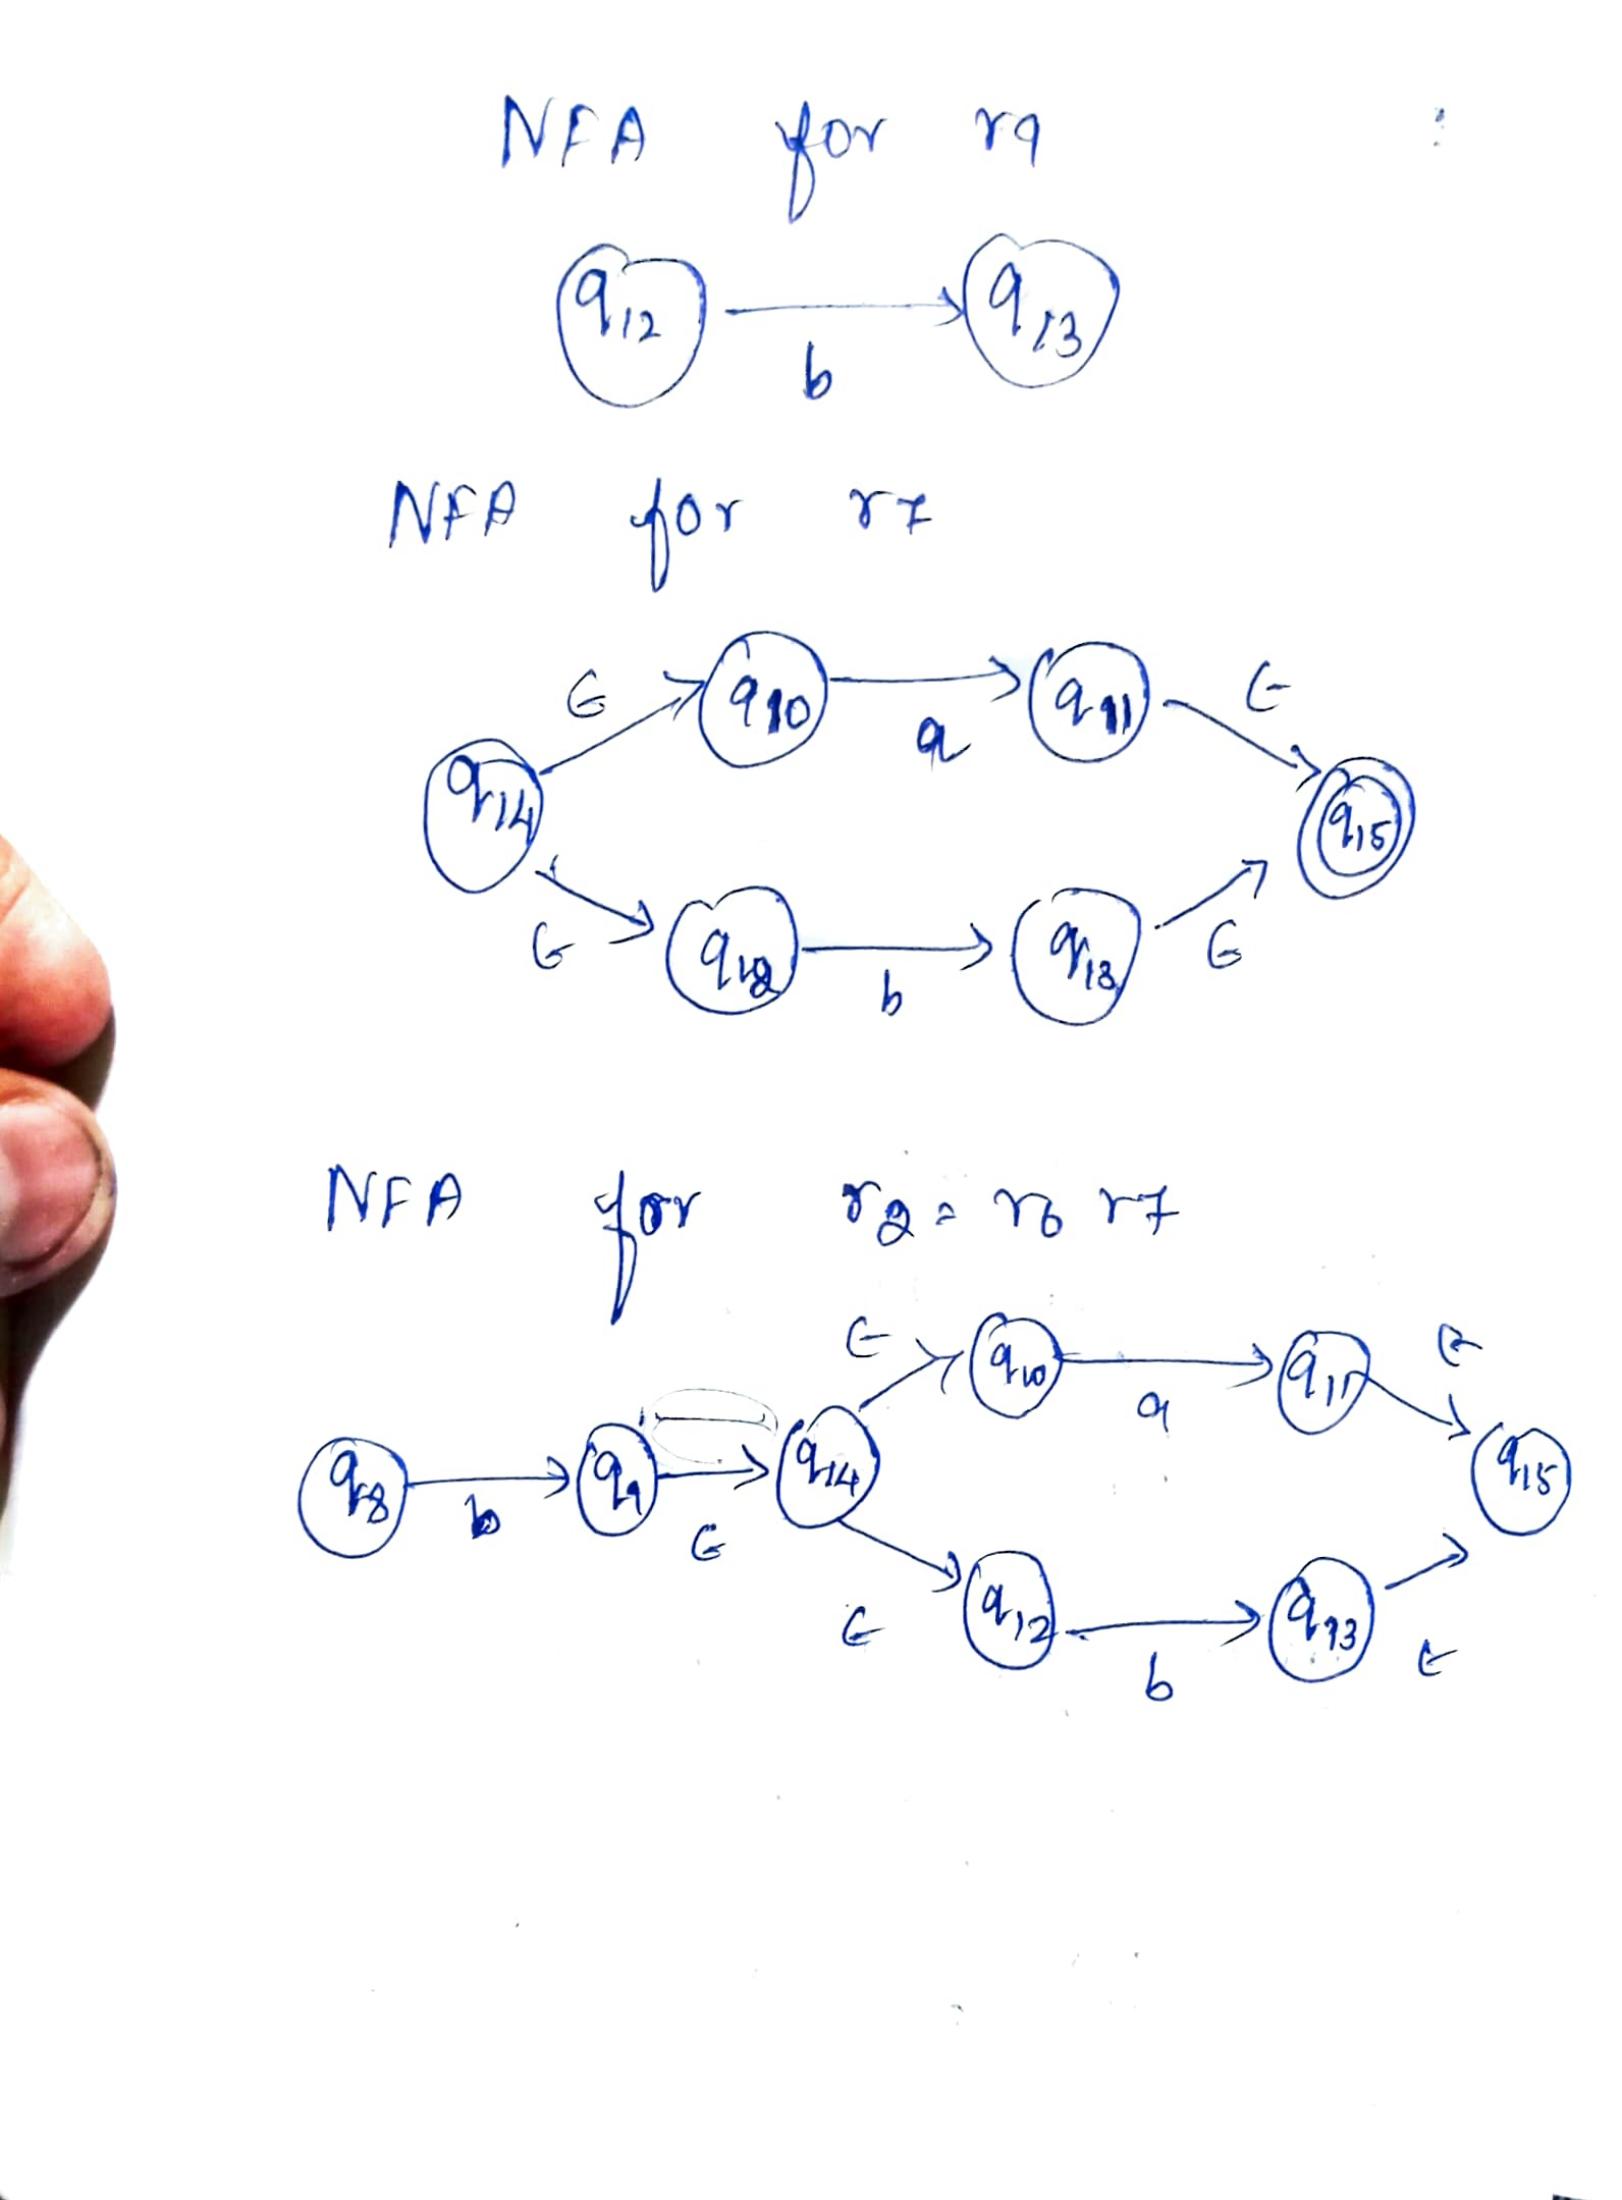 NFA for r9
q12 b q13
NFA for r7
ϵ q10 a q11 ϵ
q14 q15
ϵ q12 b q13 ϵ
NFA for r2 = r6 r7
ϵ q10 a q11 ϵ
q8 b q9 ϵ q14 q15
ϵ q12 b q13 ϵ